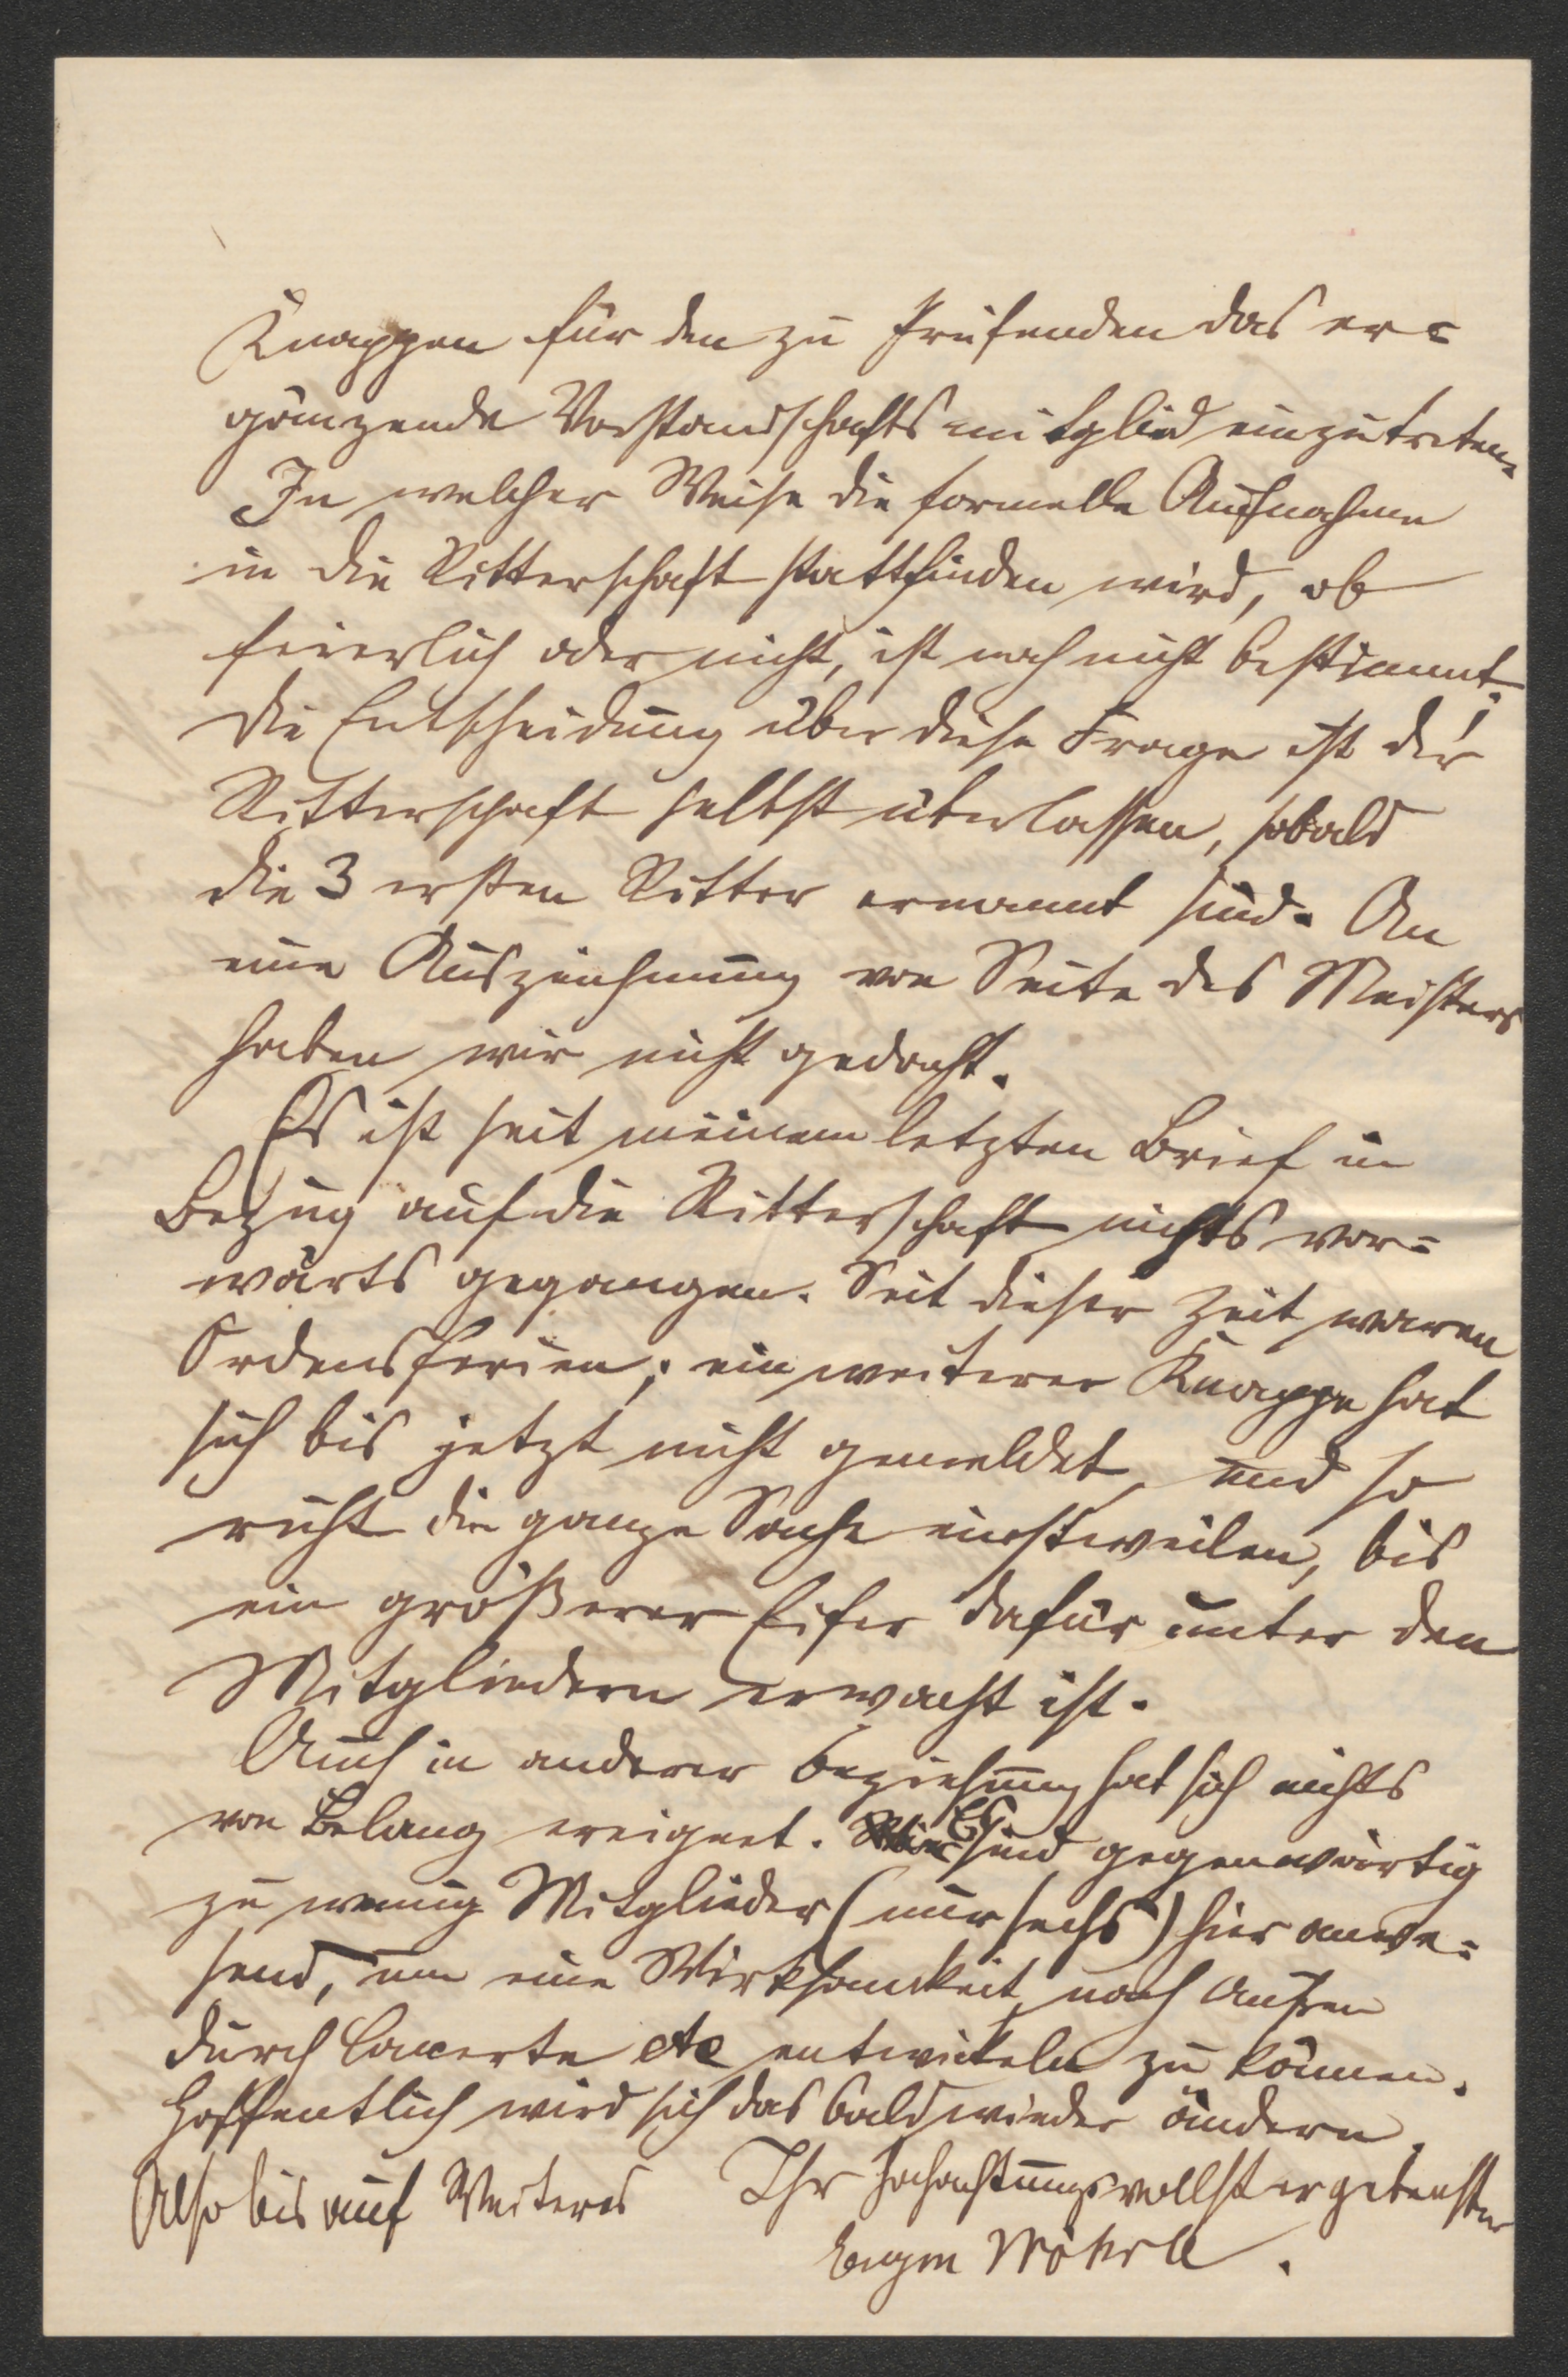 Knappen für den zu Prüfenden das er=
gänzende Vorstandschaftsmitglied einzutreten.
In welcher Weise die formelle Aufnahme
in die Ritterschaft stattfinden wird, ob
feierlich oder nicht, ist noch nicht bestimmt.
Die Entscheidung über diese Frage ist der
Ritterschaft selbst überlassen, sobald
die 3 ersten Ritter ernannt sind. An
eine Auszeichnung von Seite des Meisters
haben wir nicht gedacht.
Es ist seit meinem letzten Brief in
Bezug auf die Ritterschaft nichts vor=
wärts gegangen. Seit dieser Zeit waren
Ordensferien; ein weiterer Knappe hat
sich bis jetzt nicht gemeldet, und so
ruht die ganze Sache einstweilen, bis
ein größerer Eifer dafür unter den
Mitgliedern erwacht ist.
Auch in anderer Beziehung hat sich nichts
von Belang ereignet. Es sind gegenwärtig
zu wenig Mitglieder (nur sechs) hier anwe=
send, um eine Wirksamkeit nach Außen
durch Concerte etc entwickeln zu können.
Hoffentlich wird sich das bald wieder ändern.
Also bis auf Weiteres Ihr hochachtungsvollst ergebenster
Eugen Wöhrle.